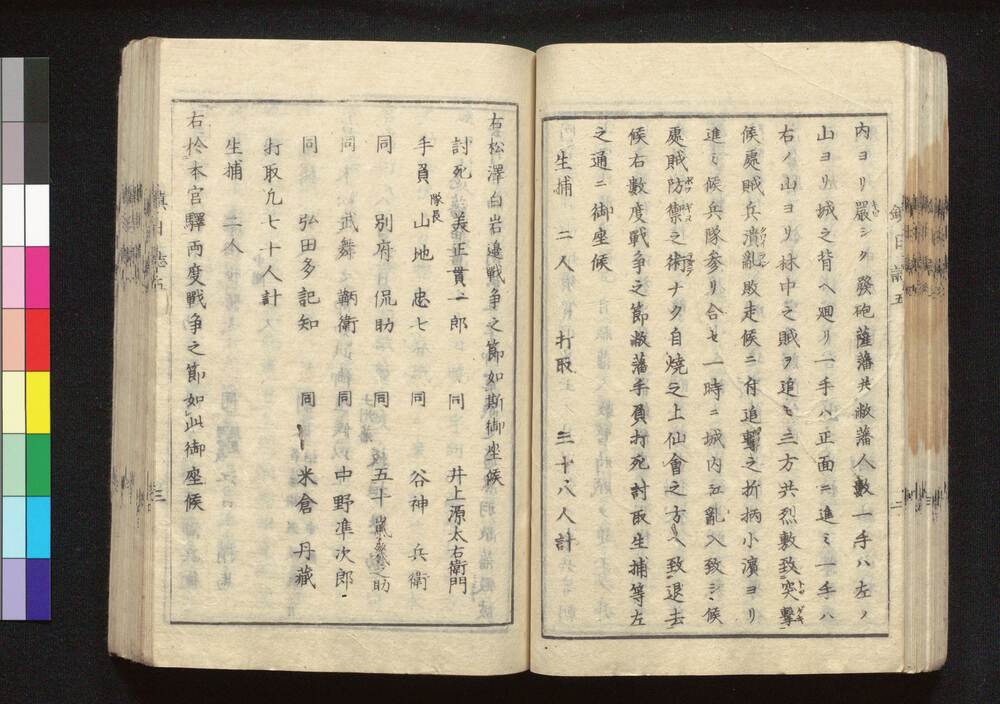 内ヨリ嚴シク發砲薩藩共敝藩人數一手ハ左ノ
山ヨリ城之背ヘ廻リ一手ハ正面ニ進ミ一手ハ
右ノ山ヨリ林中之賊ヲ追ヒ三方共烈敷致突擊
候處賊兵潰亂敗走候ニ付追擊之折柄小濱ヨリ
進ミ候兵隊参リ合セ一時ニ城内江亂入致シ候
處賊防禦之術ナク自燒之上仙會之方ヘ致退去
候右數度戰争之節敝藩手負打死討取生捕等左
之通ニ御座候
生捕 二人 打取 三十八人計
右松澤白岩邉戰争之節如斯御座候
討死 美正貫二郎 同 井上源太右衛門
手負 隊長 山地忠七 同 谷神兵衛
同 別府侃助 同 五十嵐幾之助
同 武舞鞆衛 同 中野準次郎
同 弘田多記知 同 米倉丹藏
打取凢七十人計
生捕 二人
右於本宮驛両度戰争之節如此御座候
三